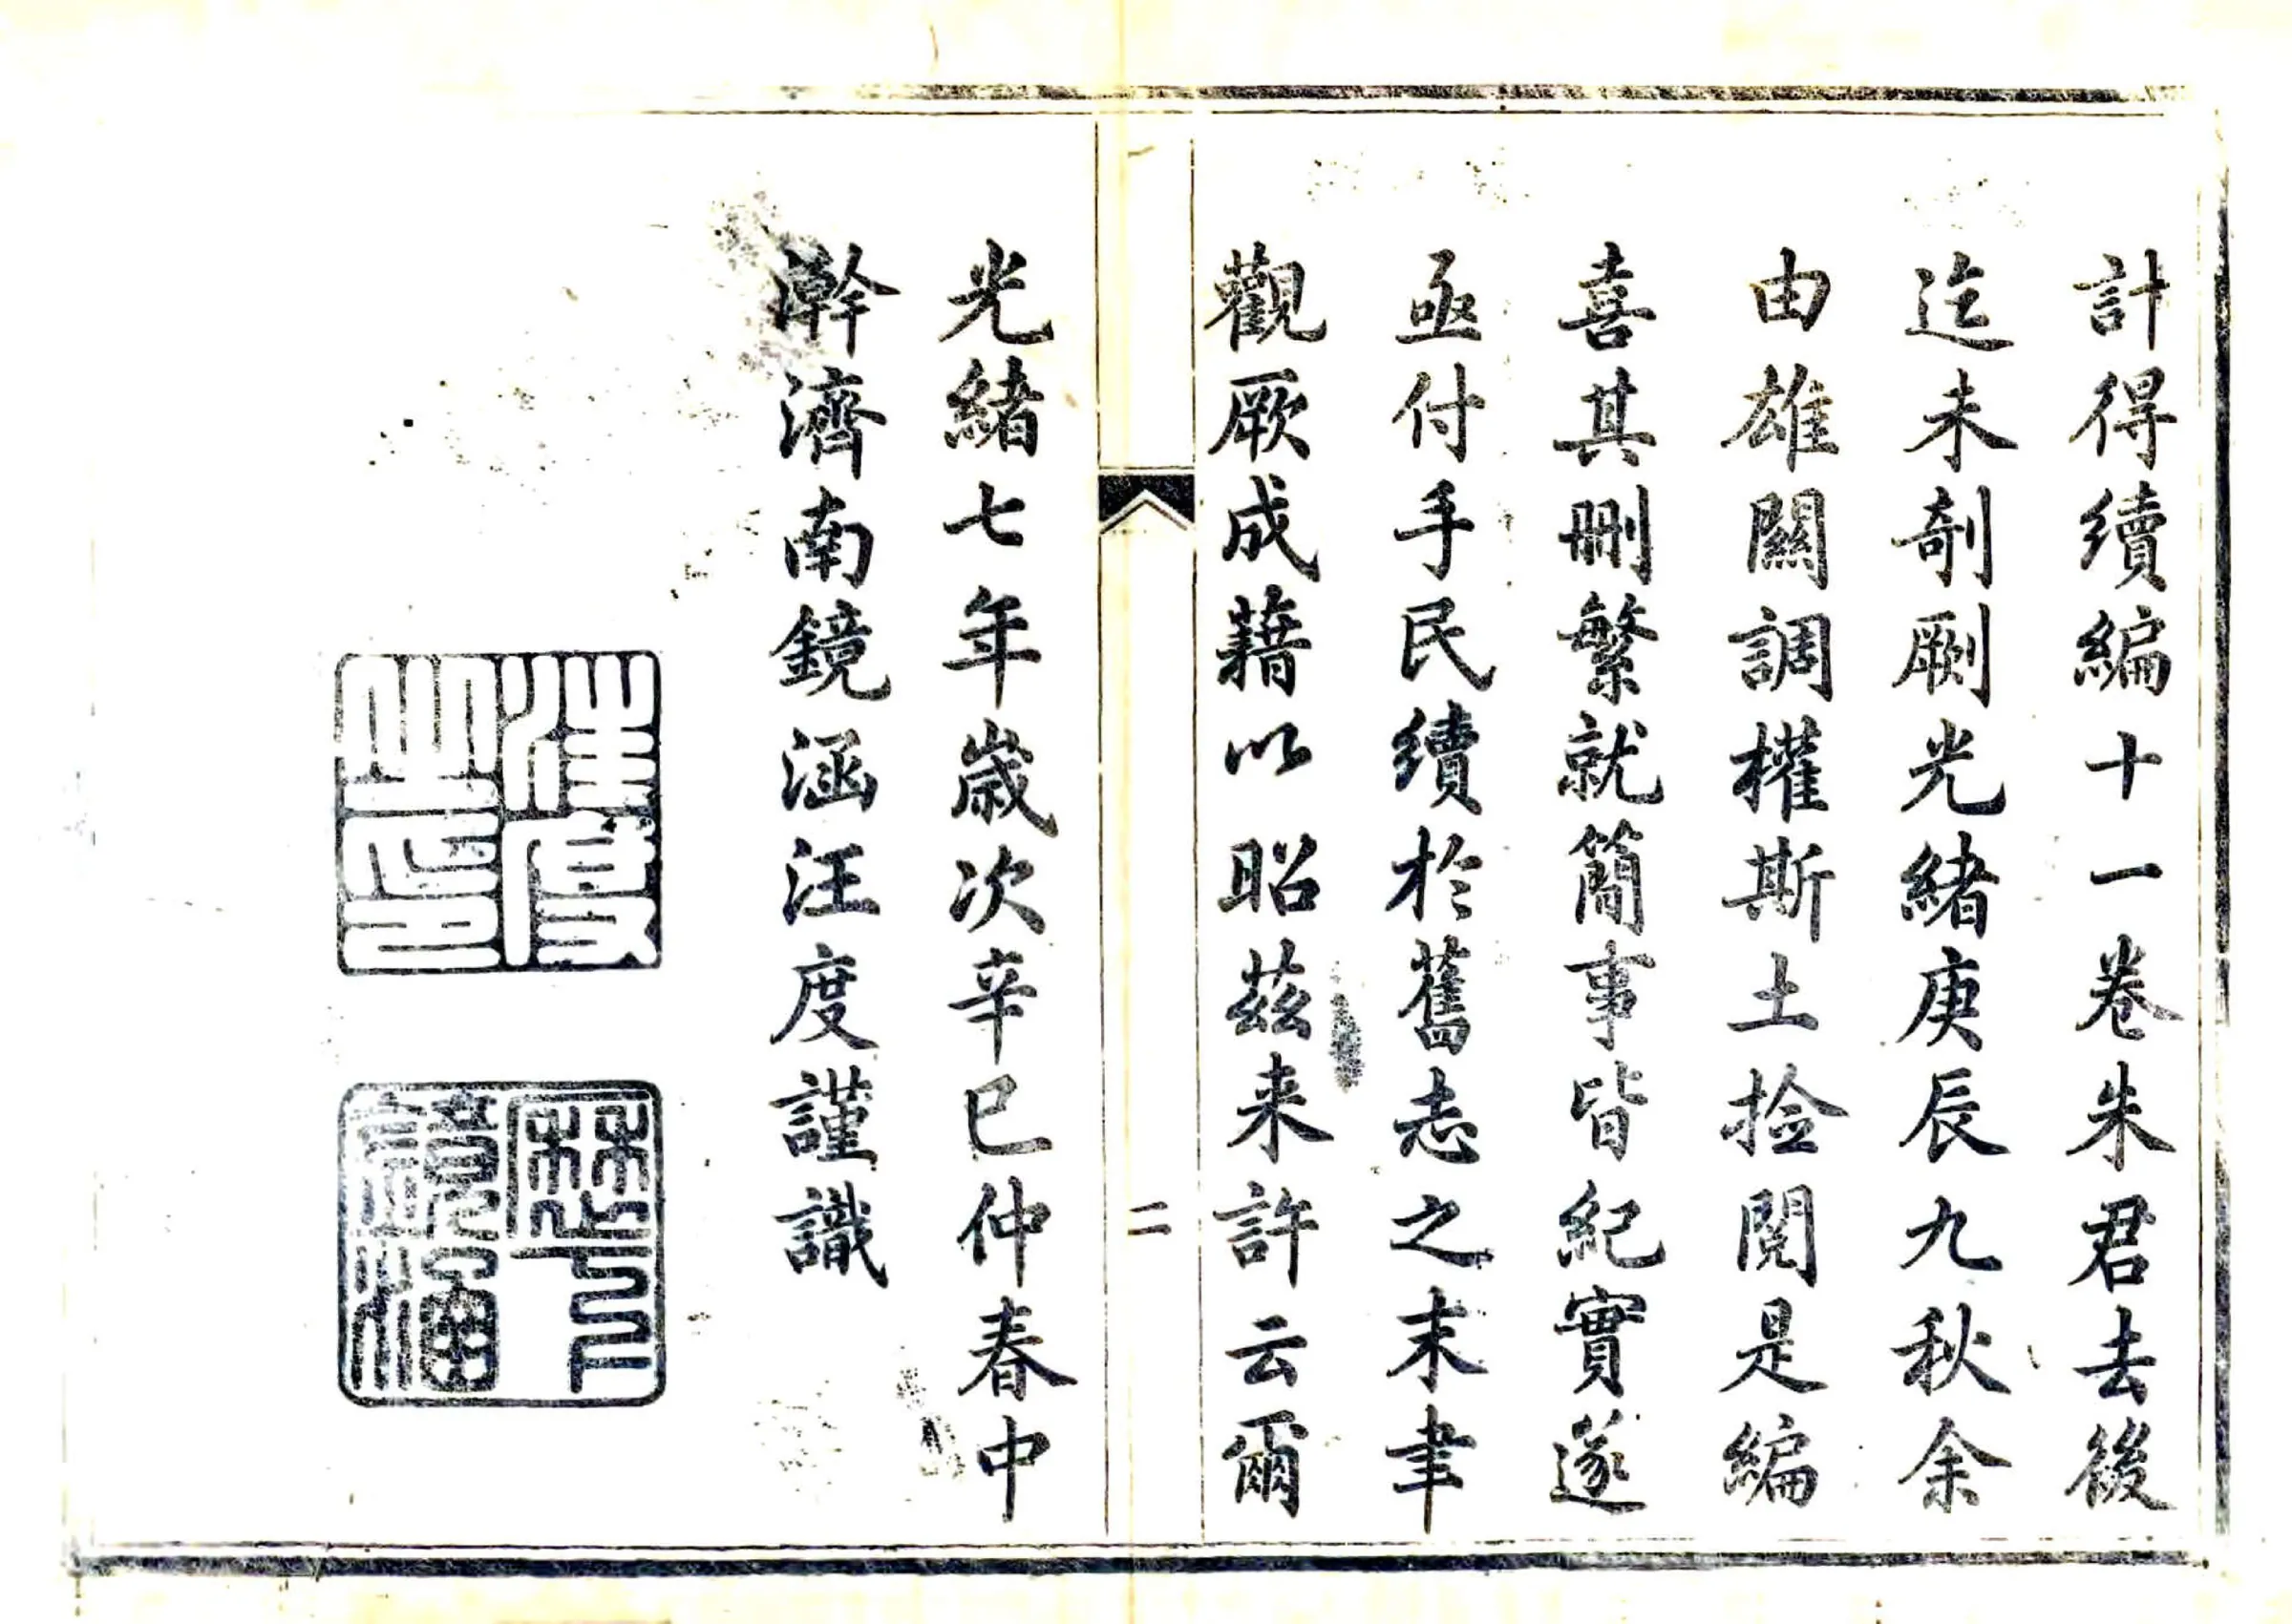 計得續編十一卷朱君去後
迄未剞劂光緒庚辰九秋余
由雄關調權斯土捡閱是編
喜其刪繁就簡事皆紀實遂
亟付手民續於舊志之末聿
觀厥成藉以昭茲来許云爾
二
光緒七年歲次辛巳仲春中
澣濟南鏡涵汪度謹識
汪度之印
歷下鏡涵